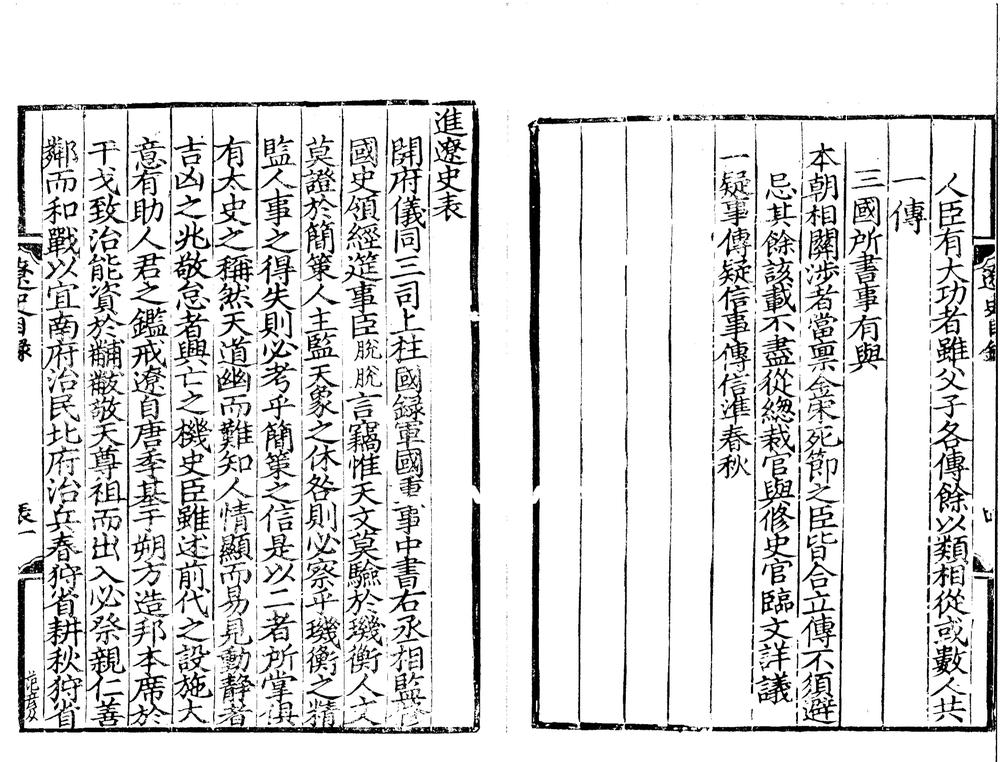 人臣有大功者雖父子各傳餘以類相從或數人共
一傳
三國所書事有與
本朝相關涉者當禀金宋死節之臣皆合立傳不須避
忌其餘該載不盡從緫裁官與修史官臨文詳議
一疑事傳疑信事傳信準春秋
遼史目錄
進遼史表
開府儀同三司上柱國錄軍國重事中書右丞相監脩
國史領經筵事臣脫脫言竊惟天文莫驗於璣衡人文
莫證於簡策人主監天象之休咎則必察乎璣衡之精
監人事之得失則必考乎簡策之信是以二者所掌俱
有太史之稱然天道幽而難知人情顯而易見動靜者
吉凶之兆敬怠者興亡之機史臣雖述前代之設施大
意有助人君之鑑戒遼自唐季基于朔方造邦本席於
干戈致治能資於黼黻敬天尊祖而出入必祭親仁善
鄰而和戰以宜南府治民北府治兵春狩省耕秋狩省
遼史目録
表一